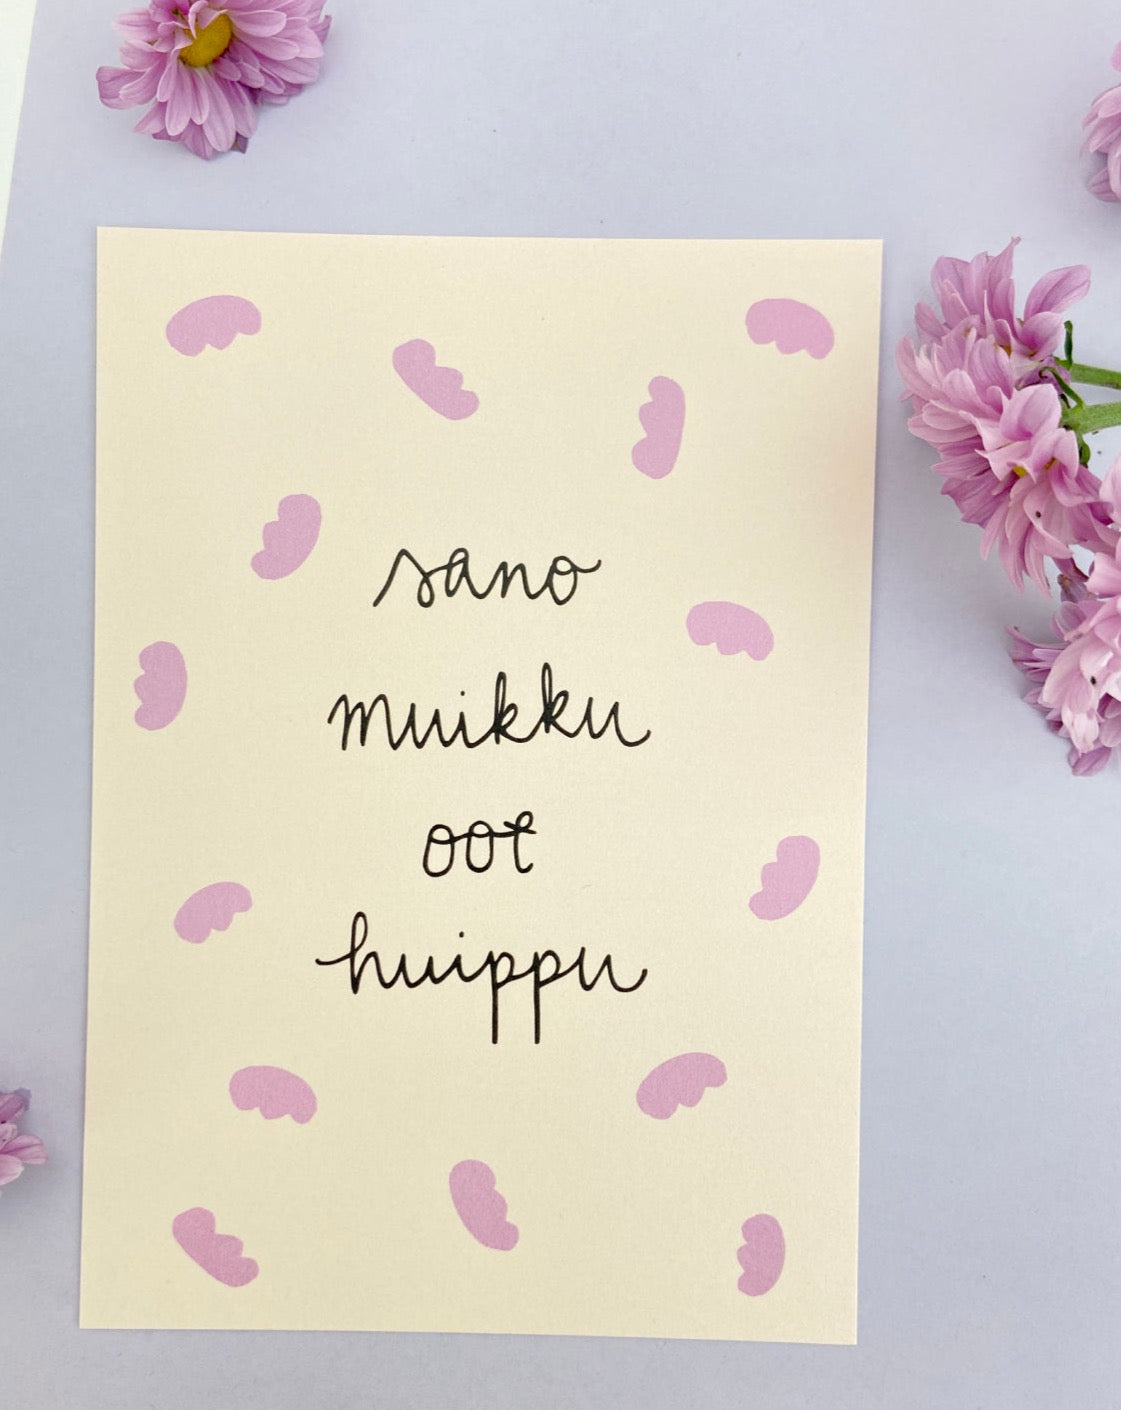 sano
muikku
oot
huippu